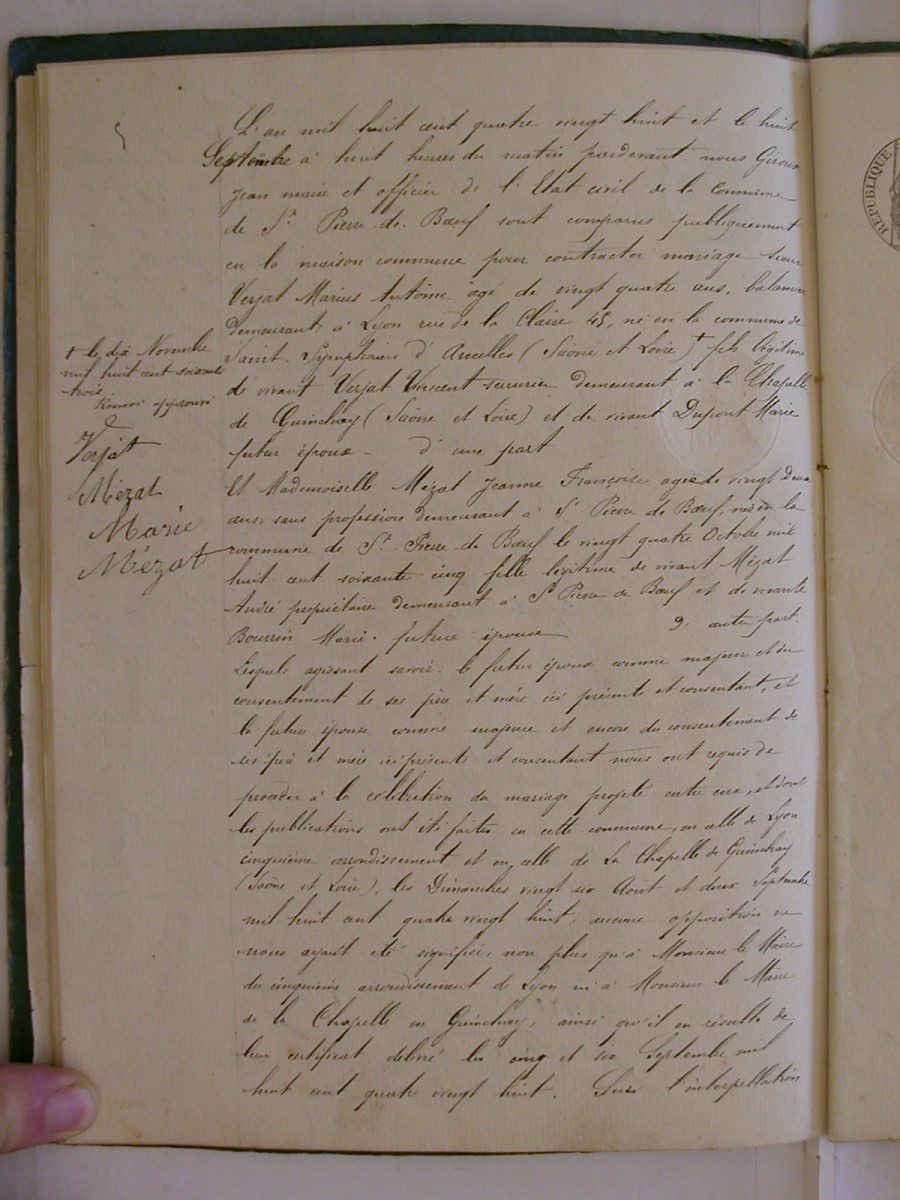 5
L'an mil huit cent quatre vingt huit et le huit
Septembre à huit heures du matin pardevant nous Giroux
Jean maire et officier de l'Etat civil de la Commune
de St Pierre de Bœuf sont comparus publiquement
en la maison commune pour contracter mariage sieur
Verjat Marius Antoine âgé de vingt quatre ans,
demeurant à Lyon rue de la Claire 45, né en la commune de
Saint-Symphorien d'Ancelles (Saône et Loire) † fils légitime
de vivant Verjat Vincent serrurier demeurant à la Chapelle
de Guinchay (Saône et Loire) et de vivant Dupont Marie
futur époux - d'une part
Et Mademoiselle Mézat Jeanne Françoise agée de vingt deux
ans, sans profession demeurant à St Pierre de Bœuf, née en la
commune de St Pierre de Bœuf le vingt quatre Octobre mil
huit cent soixante cinq fille légitime de vivant Mézat
André propriétaire demeurant à St Pierre de Bœuf et de vivante
Bourrin Marie. future épouse d. autre part.
Lesquels agissant savoir: le futur époux comme majeur et du
consentement de ses père et mère ici présents et consentant, et
la future épouse comme majeure et encore du consentement de
ses père et mère ici présents et consentant nous ont requis de
procéder à la célébration du mariage projeté entre eux, et dont
les publications ont été faites en cette commune, en celle de Lyon
cinquième arrondissement et en celle de La Chapelle de Guinchay
(Saône et Loire), les Dimanches vingt six Août et deux Septembre
mil huit cent quatre vingt huit, aucune opposition ne
nous ayant été signifiée, non plus qu'à Monsieur le Maire
du cinquième arrondissement de Lyon ni à Monsieur le Maire
de la Chapelle en Guinchay, ainsi qu'il en résulte de
leur certificat délivré les cinq et six Septembre mil
huit cent quatre vingt huit. Sur l'interpellation
† le dix Novembre
mil huit cent soixante
trois
Renvoi approuvé
Verjat
Mézat
Marie
Mézat
RÉPUBLIQUE